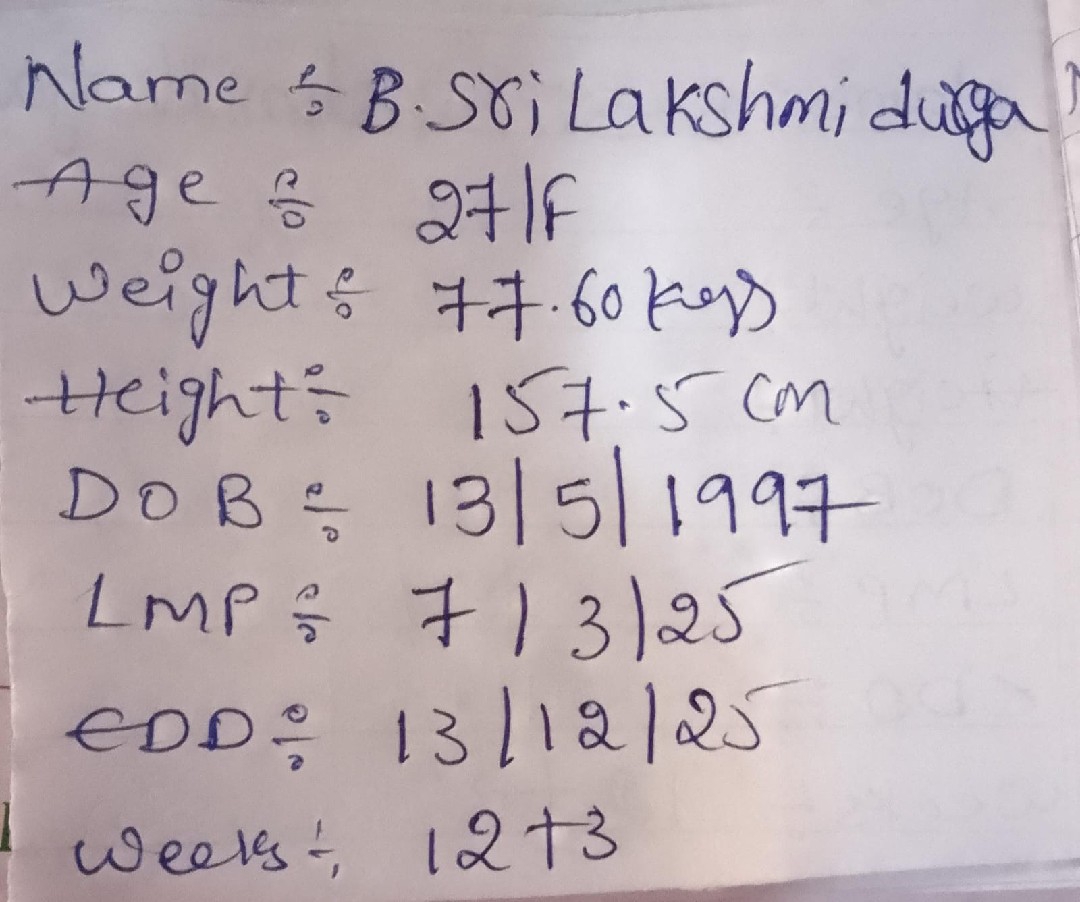 Name ÷ B. Sri Lakshmi durga
Age ÷ 27/F
Weight ÷ 77.60 kegs
Height ÷ 157.5 cm
DOB ÷ 13/5/1997
LMP ÷ 7/3/25
EDD ÷ 13/12/25
Weeks ÷ 12+3